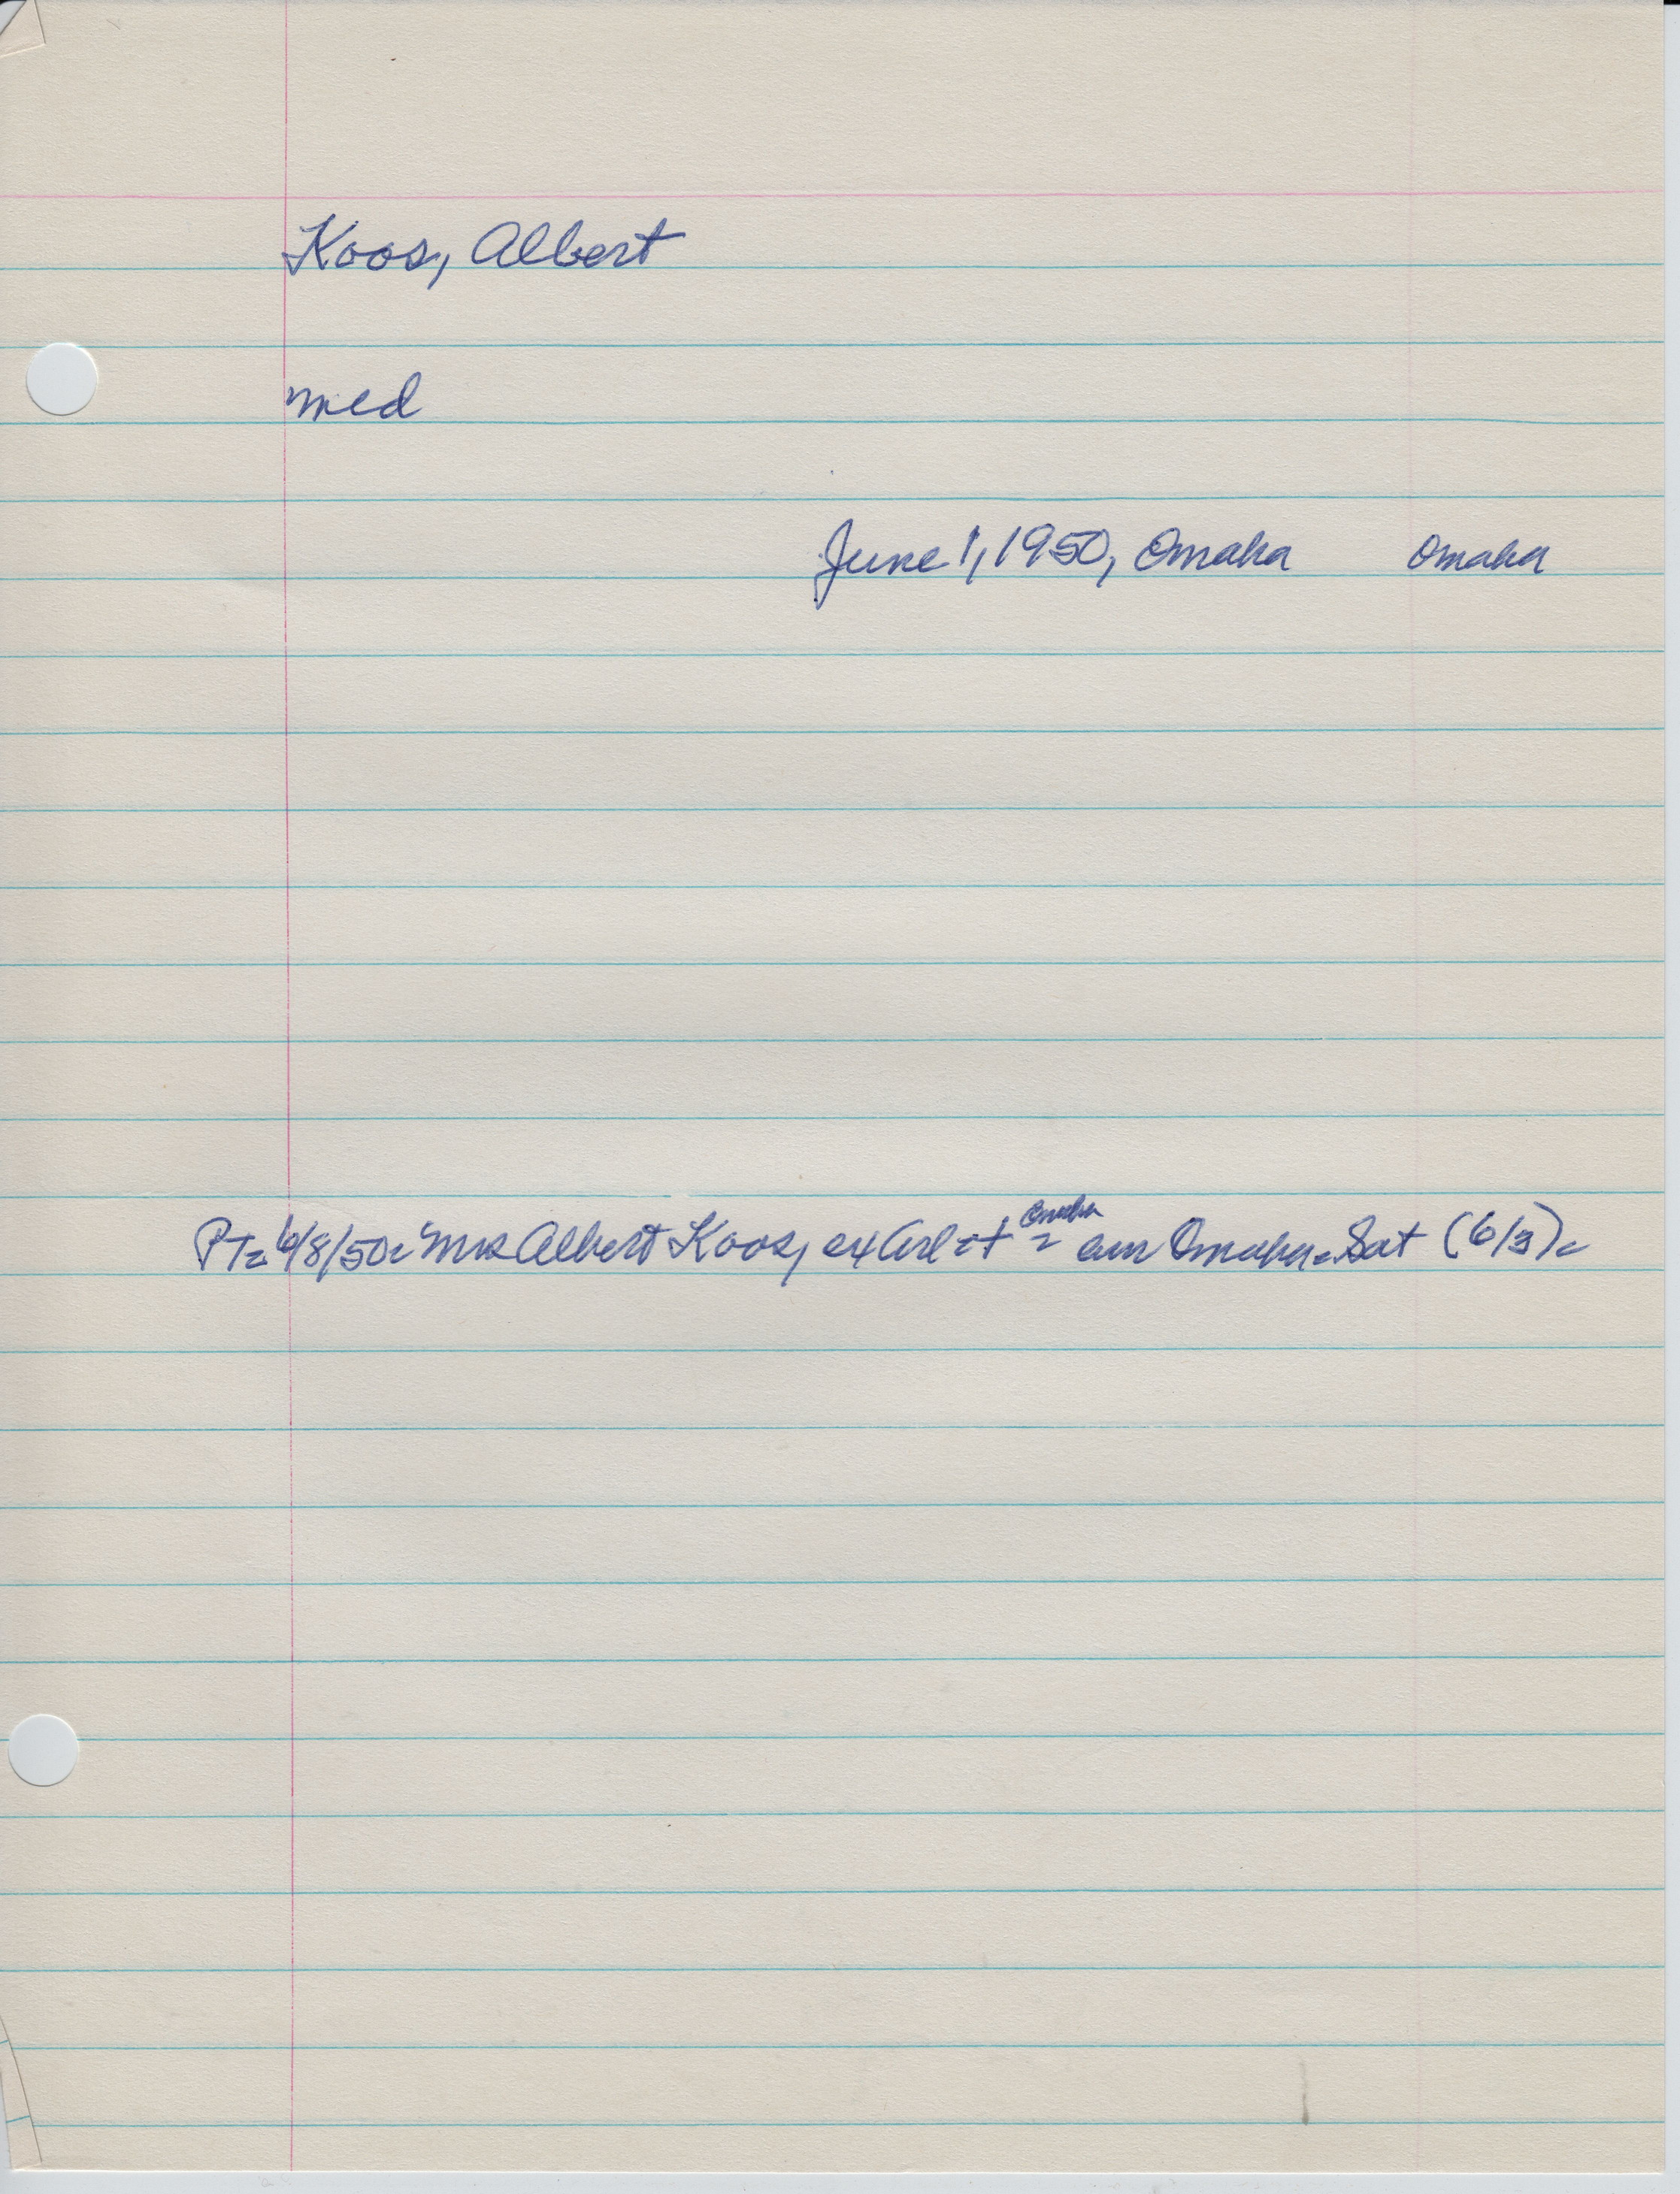 Koos, Albert
med
June 1, 1950, Omaha Omaha
Omaha
PT= 6/8/50= Mrs Albert Koos, ex Arl = + = Omaha = Sat (6/3)=